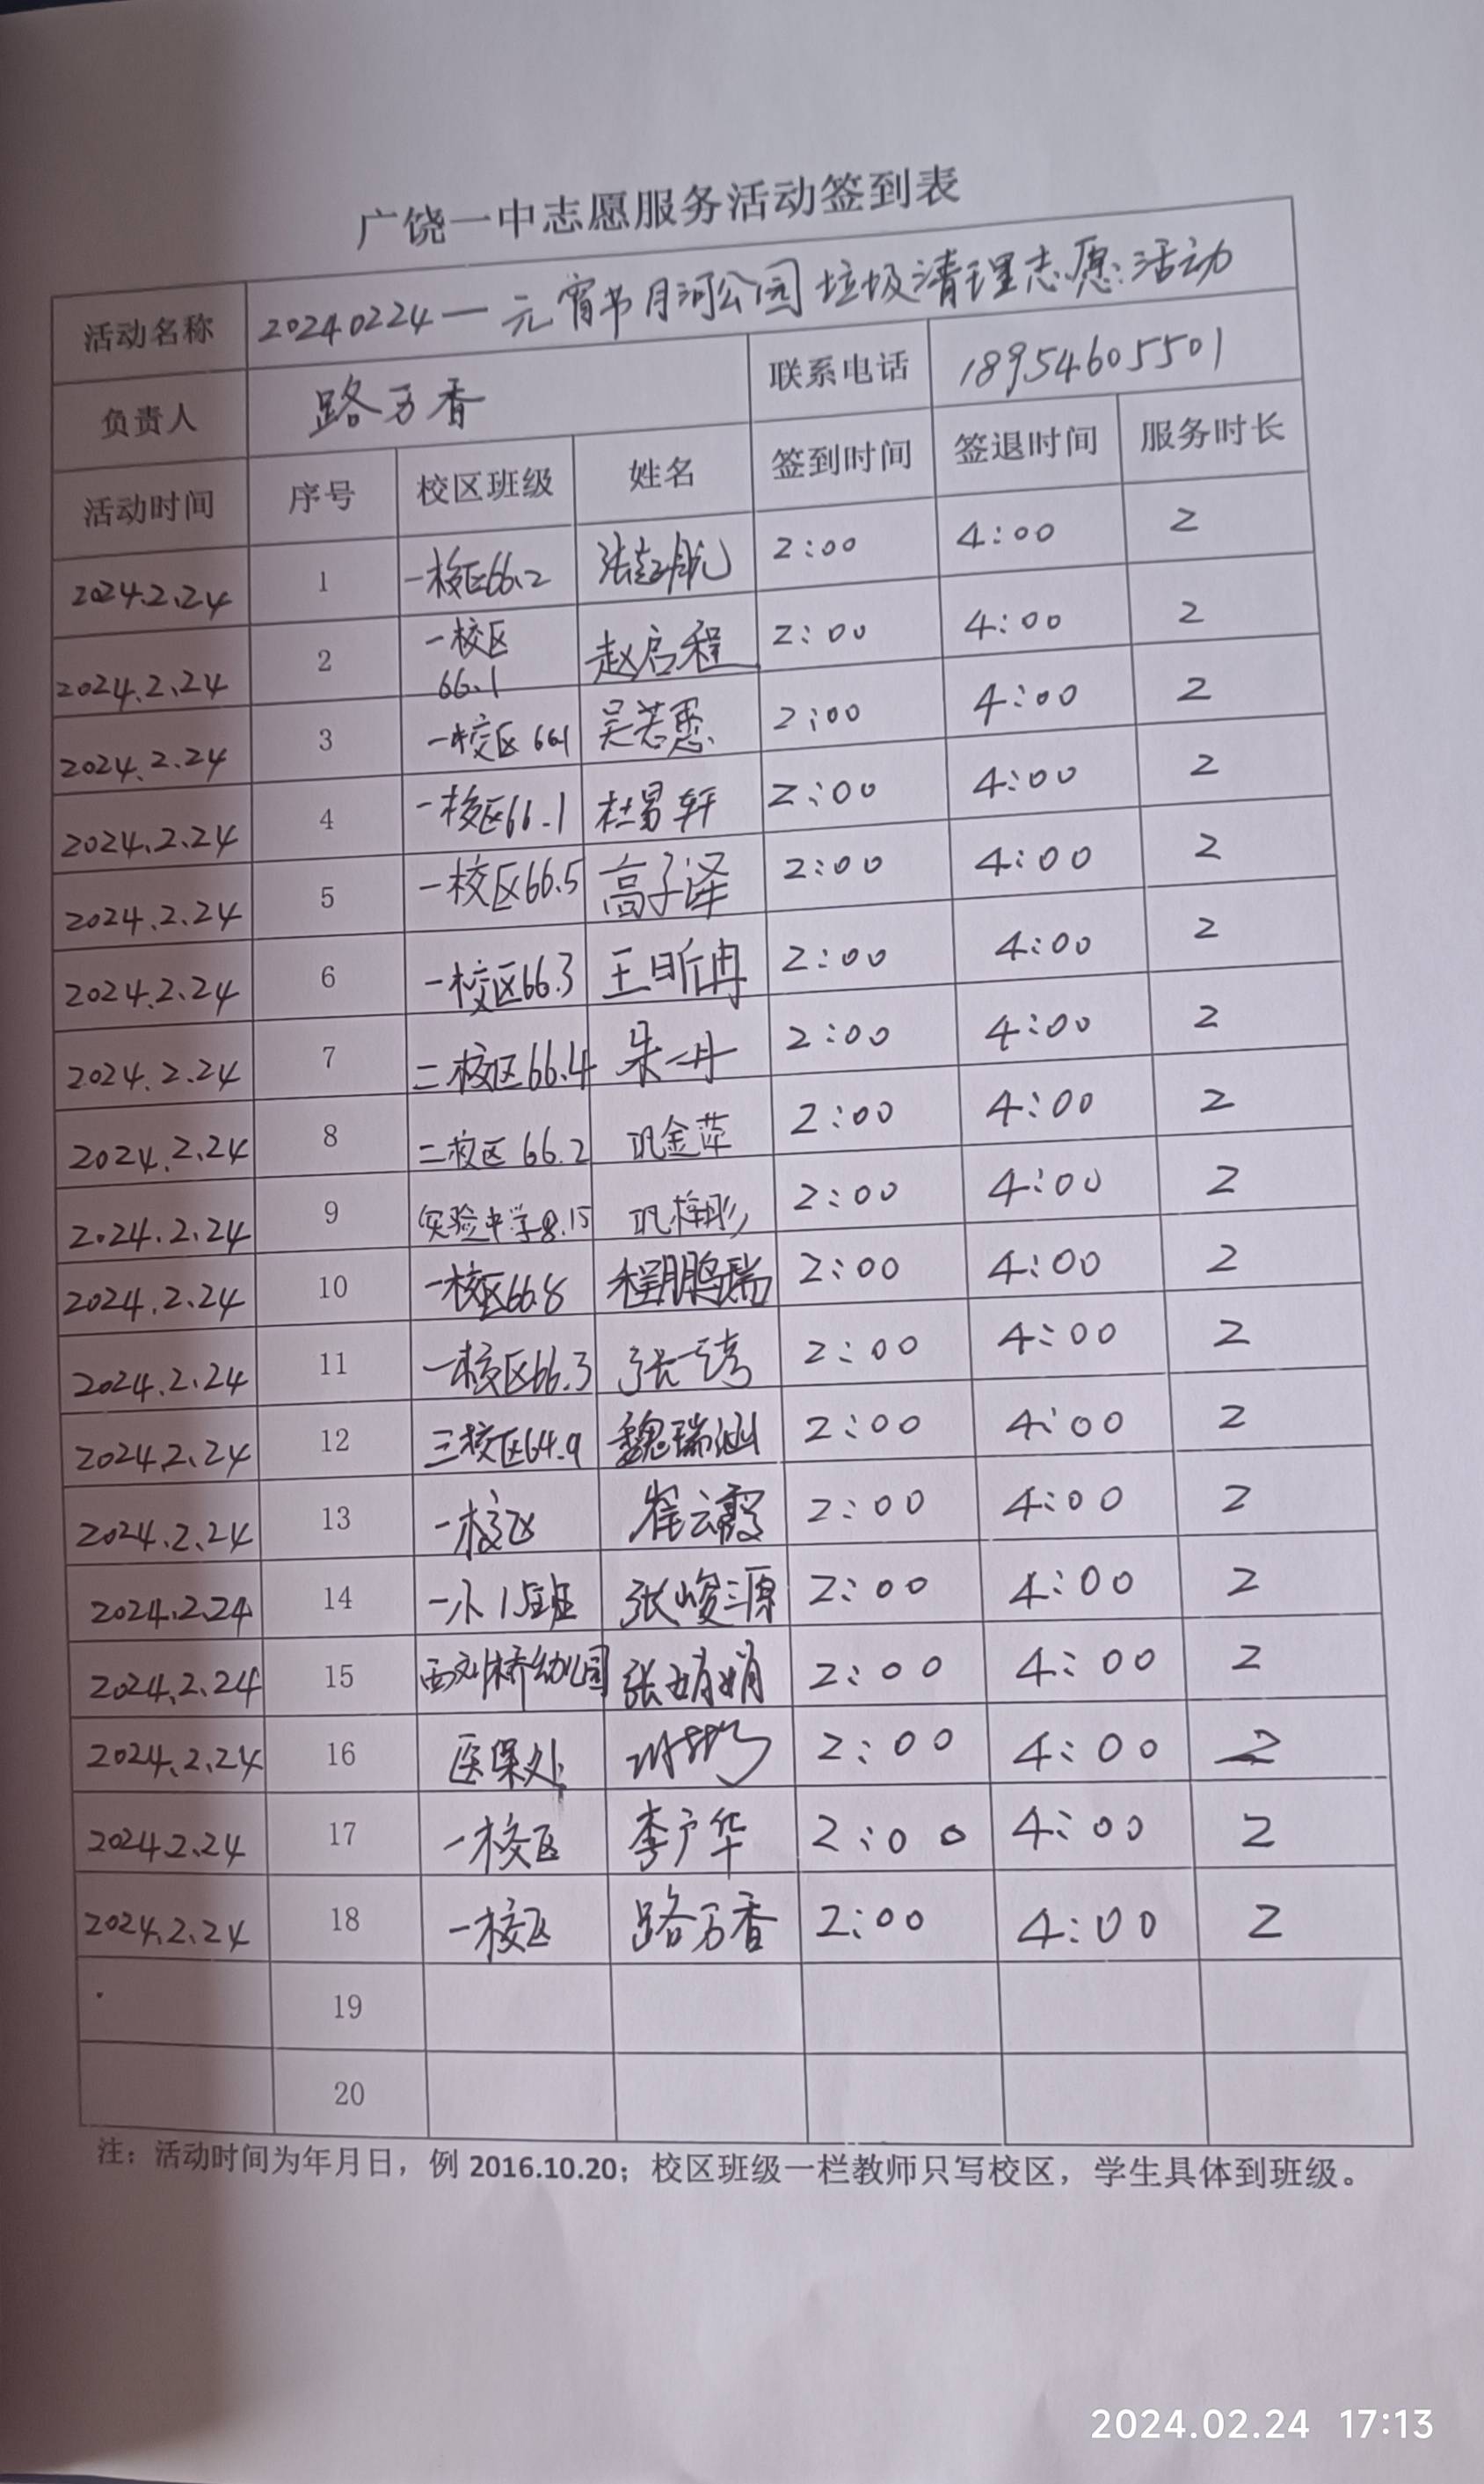 广饶一中志愿服务活动签到表
活动名称 20240224一元宵节月河公园垃圾清理志愿活动
负责人 路万香 联系电话 18954605501
活动时间 序号 校区班级 姓名 签到时间 签退时间 服务时长
2024.2.24 1 一校区66.2 2:00 4:00 2
2024.2.24 2 一校区 66.1 赵启程 2:00 4:00 2
2024.2.24 3 一校区 661 吴若愚 2:00 4:00 2
2024.2.24 4 一校区66.1 杜易轩 2:00 4:00 2
2024.2.24 5 一校区66.5 高子泽 2:00 4:00 2
2024.2.24 6 一校区66.3 王昕冉 2:00 4:00 2
2024.2.24 7 二校区66.4 朱一丹 2:00 4:00 2
2024.2.24 8 二校区 66.2 巩金萍 2:00 4:00 2
2024.2.24 9 实验中学8.15 巩梓彤 2:00 4:00 2
2024.2.24 10 一校区66.8 程鹏瑞 2:00 4:00 2
2024.2.24 11 一校区66.3 2:00 4:00 2
2024.2.24 12 三校区64.9 魏瑞涵 2:00 4:00 2
2024.2.24 13 一校区 崔云霞 2:00 4:00 2
2024.2.24 14 一小 班 张峻源 2:00 4:00 2
2024.2.24 15 西刘桥幼儿园 张娟娟 2:00 4:00 2
2024.2.24 16 医保处 2:00 4:00 2
2024.2.24 17 一校区 李广华 2:00 4:00 2
2024.2.24 18 一校区 路万香 2:00 4:00 2
19
20
注：活动时间为年月日，例 2016.10.20；校区班级一栏教师只写校区，学生具体到班级。
2024.02.24 17:13